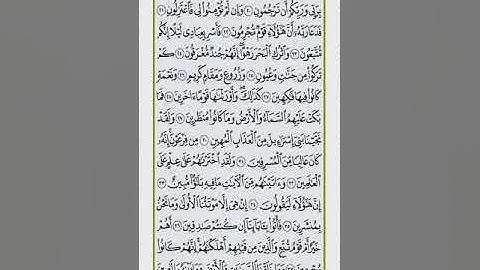 بِرَبِّى وَرَبِّكُمْ أَن تَرْجُمُونِ ٢٠ وَإِن لَّمْ تُؤْمِنُوا۟ لِى فَٱعْتَزِلُونِ ٢١
فَدَعَا رَبَّهُۥٓ أَنَّ هَٰٓؤُلَآءِ قَوْمٌ مُّجْرِمُونَ ٢٢ فَأَسْرِ بِعِبَادِى لَيْلًا إِنَّكُم
مُّتَّبَعُونَ ٢٣ وَٱتْرُكِ ٱلْبَحْرَ رَهْوًا ۖ إِنَّهُمْ جُندٌ مُّغْرَقُونَ ٢٤ كَمْ
تَرَكُوا۟ مِن جَنَّٰتٍ وَعُيُونٍ ٢٥ وَزُرُوعٍ وَمَقَامٍ كَرِيمٍ ٢٦ وَنَعْمَةٍ
كَانُوا۟ فِيهَا فَٰكِهِينَ ٢٧ كَذَٰلِكَ ۖ وَأَوْرَثْنَٰهَا قَوْمًا ءَاخَرِينَ ٢٨ فَمَا
بَكَتْ عَلَيْهِمُ ٱلسَّمَآءُ وَٱلْأَرْضُ وَمَا كَانُوا۟ مُنظَرِينَ ٢٩ وَلَقَدْ
نَجَّيْنَا بَنِىٓ إِسْرَٰٓءِيلَ مِنَ ٱلْعَذَابِ ٱلْمُهِينِ ٣٠ مِن فِرْعَوْنَ ۚ إِنَّهُۥ
كَانَ عَالِيًا مِّنَ ٱلْمُسْرِفِينَ ٣١ وَلَقَدِ ٱخْتَرْنَٰهُمْ عَلَىٰ عِلْمٍ عَلَى
ٱلْعَٰلَمِينَ ٣٢ وَءَاتَيْنَٰهُم مِّنَ ٱلْءَايَٰتِ مَا فِيهِ بَلَٰٓؤٌا۟ مُّبِينٌ ٣٣
إِنَّ هَٰٓؤُلَآءِ لَيَقُولُونَ ٣٤ إِنْ هِىَ إِلَّا مَوْتَتُنَا ٱلْأُولَىٰ وَمَا نَحْنُ
بِمُنشَرِينَ ٣٥ فَأْتُوا۟ بِـَٔابَآئِنَآ إِن كُنتُمْ صَٰدِقِينَ ٣٦ أَهُمْ
خَيْرٌ أَمْ قَوْمُ تُبَّعٍ وَٱلَّذِينَ مِن قَبْلِهِمْ ۚ أَهْلَكْنَٰهُمْ ۖ إِنَّهُمْ كَانُوا۟